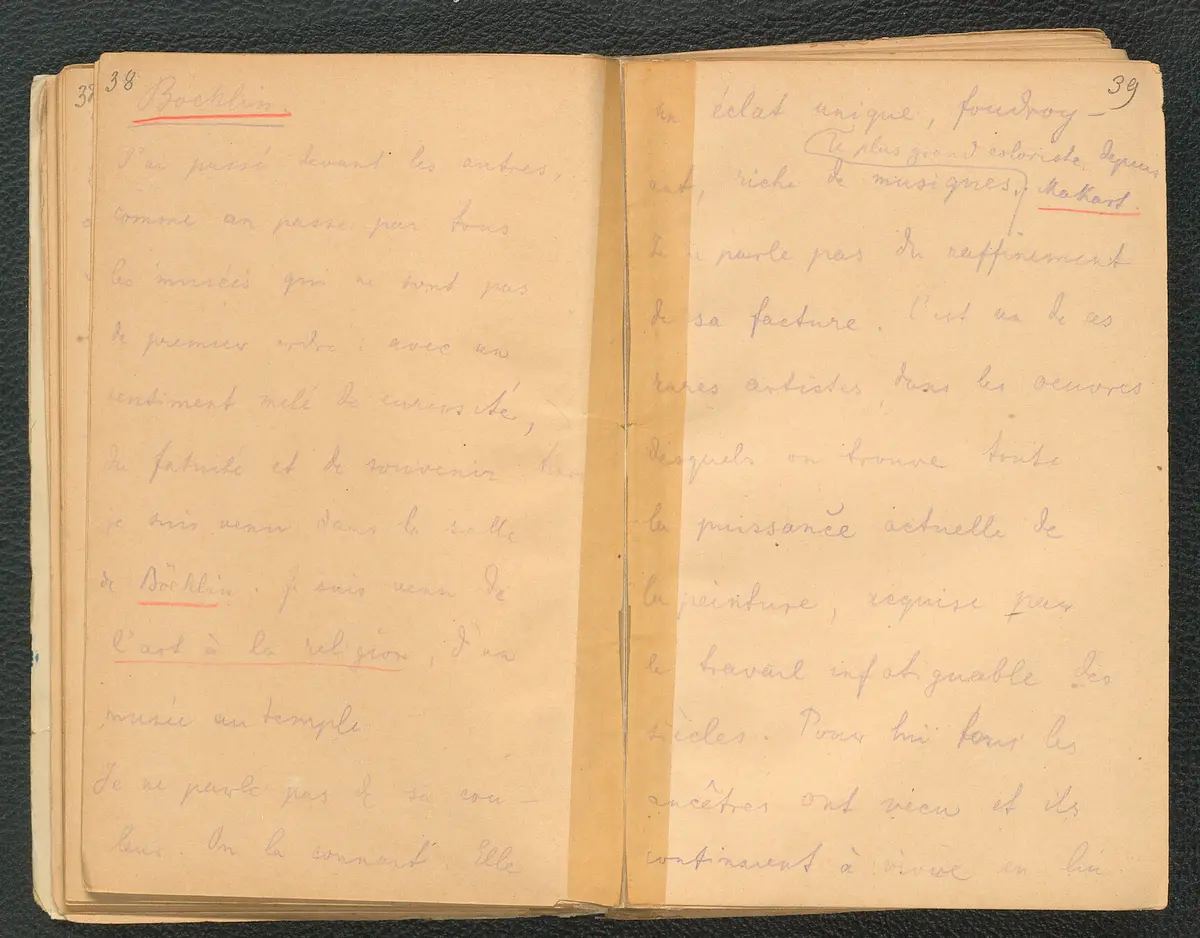 38
Böcklin.
J'ai passé devant les autres,
comme on passe par tous
les musées qui ne sont pas
de premier ordre : avec un
sentiment mêlé de curiosité,
de fatuité et de souvenir
je suis venu dans la salle
de Böcklin. Je suis venu de
l'art à la religion, d'un
musée au temple
Je ne parle pas de sa cou-
leur. On la connait. Elle
39
un éclat unique, foudroy-
Le plus grand coloriste depuis
ant, riche de musiques. Makart.
parle pas du raffinement
de sa facture. C'est un de ces
rares artistes, dans les oeuvres
desquels on trouve toute
la puissance actuelle de
la peinture, requise par
le travail infatiguable des
siècles. Pour lui tous les
ancêtres ont vécu et ils
continuent à vivre en lui.